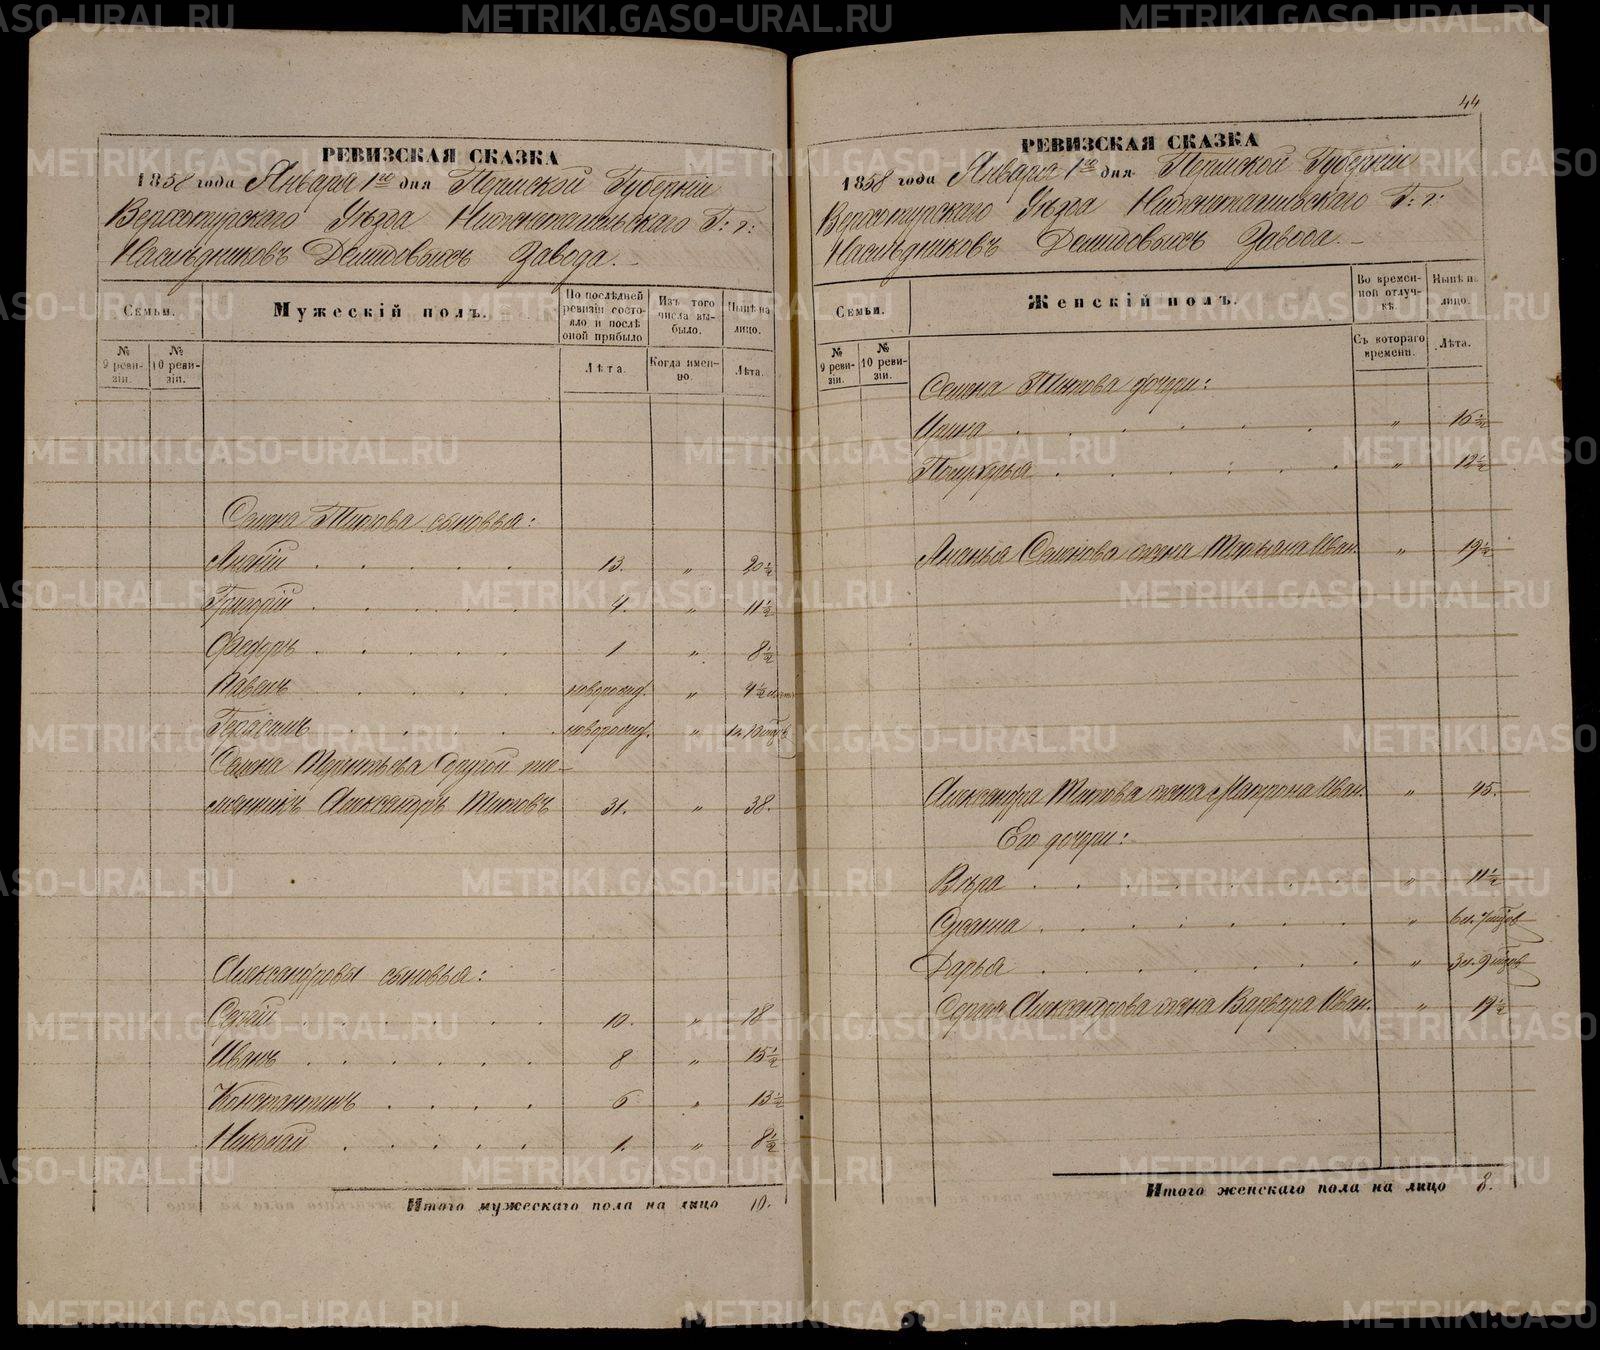 РЕВИЗСКАЯ СКАЗКА
1858 года Января 1го дня Пермской Губерніи
Верхотурскаго Уѣзда Нижнетагильскаго Г: г:
Наслѣдниковъ Демидовыхъ Завода.
Семьи.
Мужескій полъ.
По послѣдней ревизіи состояло и послѣ оной прибыло
Изъ того числа выбыло.
Нынѣ на лицо.
№ 9 ревизіи.
№ 10 ревизіи.
Лѣта.
Когда именно.
Лѣта.
Семена Титова сыновья:
Ананій 13. „ 20 1/2
Григорій 4. „ 11 1/2
Федоръ 1 „ 8 1/2
Павелъ новорожд. „ 4 1/2
Герасимъ новорожд. „
Семена Терентьева другой пле-
мянникъ Александръ Титовъ 31. „ 38.
Александровы сыновья:
Сергій 10. „ 18
Иванъ 8 „ 15 1/2
Константинъ 6 „ 13 1/2
Николай 1. „ 8 1/2
Итого мужескаго пола на лицо 10.
44
РЕВИЗСКАЯ СКАЗКА
1858 года Января 1го дня Пермской Губерніи
Верхотурскаго Уѣзда Нижнетагильскаго Г: г:
Наслѣдниковъ Демидовыхъ Завода.
Семьи.
Женскій полъ.
Во временной отлучкѣ.
Нынѣ на лицо.
№ 9 ревизіи.
№ 10 ревизіи.
Съ котораго времени.
Лѣта.
Семена Титова дочери:
Ирина „ 16 1/2
Пульхерья „ 12 1/2
Ананья Семенова жена Марьяна Иван. „ 19 1/2
Александра Титова жена Матрона Иван. „ 45.
Его дочери:
Вѣра „ 11 1/2
Сусанна „
Дарья „
Сергея Александрова жена Варвара Иван. „ 19 1/2
Итого женскаго пола на лицо 8.
METRIKI.GASO-URAL.RU